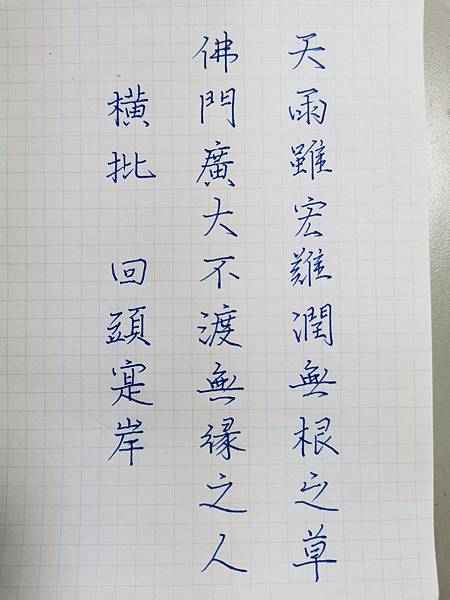 天雨雖宏難潤無根之草
佛門廣大不渡無緣之人
橫批 回頭寔岸